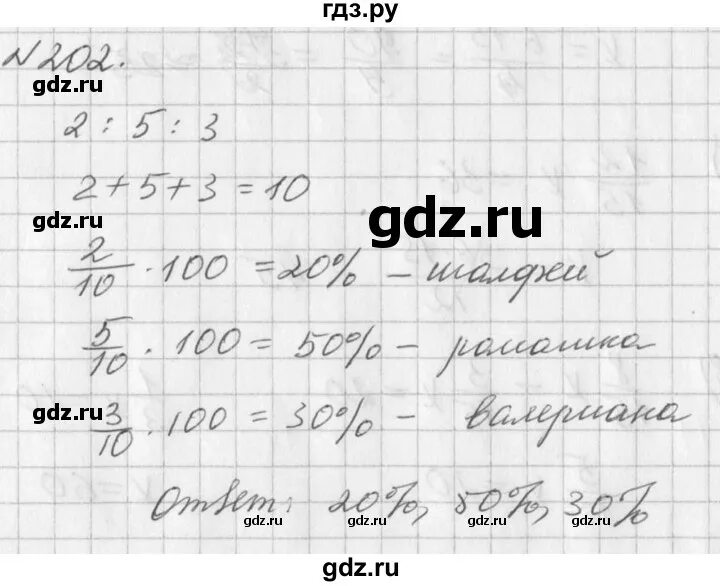 гдз.ру
№202.
gdz.ru
2 : 5 : 3
2+5+3=10
gdz.ru
gdz.ru
2/10 · 100 = 20% – шалфей
5/10 · 100 = 50% – ромашка
gdz.ru
3/10 · 100 = 30% – валериана
Ответ: 20%, 50%, 30%
gdz.ru
gdz.ru
gdz.ru
гдз.ру